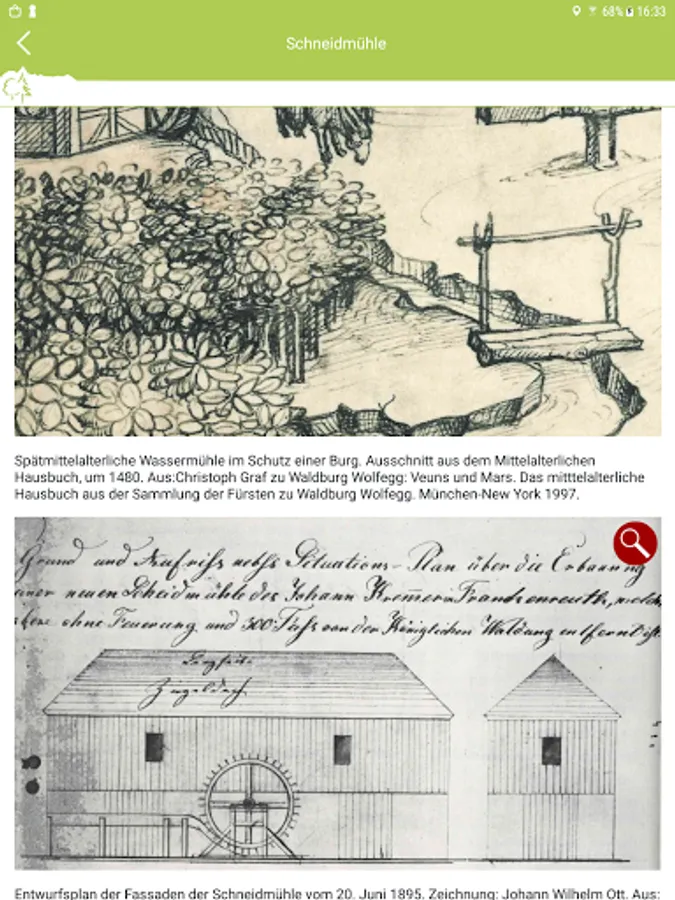 68% 16:33
Schneidmühle
Spätmittelalterliche Wassermühle im Schutz einer Burg. Ausschnitt aus dem Mittelalterlichen
Hausbuch, um 1480. Aus:Christoph Graf zu Waldburg Wolfegg: Veuns und Mars. Das mitttelalterliche
Hausbuch aus der Sammlung der Fürsten zu Waldburg Wolfegg. München-New York 1997.
Grund und Aufriss nebst Situations-Plan über die Erbauung
einer neuen Scheidmühle des Johann Kremer in Frankenreuth, welche
ohne Feuerung und 300 Fuss von der Königlichen Waldung entfernt ist.
Ziegeldach
Entwurfsplan der Fassaden der Schneidmühle vom 20. Juni 1895. Zeichnung: Johann Wilhelm Ott. Aus: